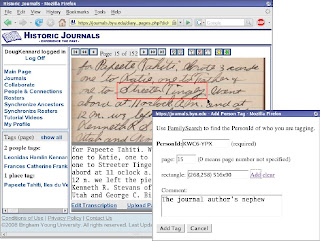 Historic Journals - Mozilla Firefox
File Edit View History Bookmarks Tools Help
https://journals.byu.edu/daily_pages.php?dir
HISTORIC JOURNALS
DougKennard logged in
Log Off
Main Page
Journals
Collaborate
People & Connections
Rootsters
Synchronize Ancestors
Synchronize Rootsters
Tutorial Videos
My Profile
Tags (page) show all
2 people tags:
Leonidas Kennard
Frances Catherine Frank
1 place tag:
Papeete Tahiti, Iles du Ve
Page 15 of 152
for Papeete Tahiti. Wrote 3 cards
one to Katie, one to Father &
one to Streeter Tingey. Went
abord at 11 oclock a.m. and at
12 m. we
for Papeete Tahiti. W
one to Katie, one to
one to Streeter Tinge
abord at 11 oclock a.
12 m. we left the pie
Kenneth R. Stevans of
Utah and George C. Bi
Edit Transcription Upload Pa
Conditions of Use | Privacy Policy | Contact Us
©2009 Brigham Young University. All Rights Reserved. Last Updated
https://journals.byu.edu - Add Person Tag - Mozilla Firefox
Use FamilySearch to find the PersonId of who you are tagging.
PersonId: KWC6-YPX (required)
page: 15 (0 means page number not specified)
rectangle: (268,258) 516x90 Add clear
Comment:
The journal author's nephew
Add Tag Cancel